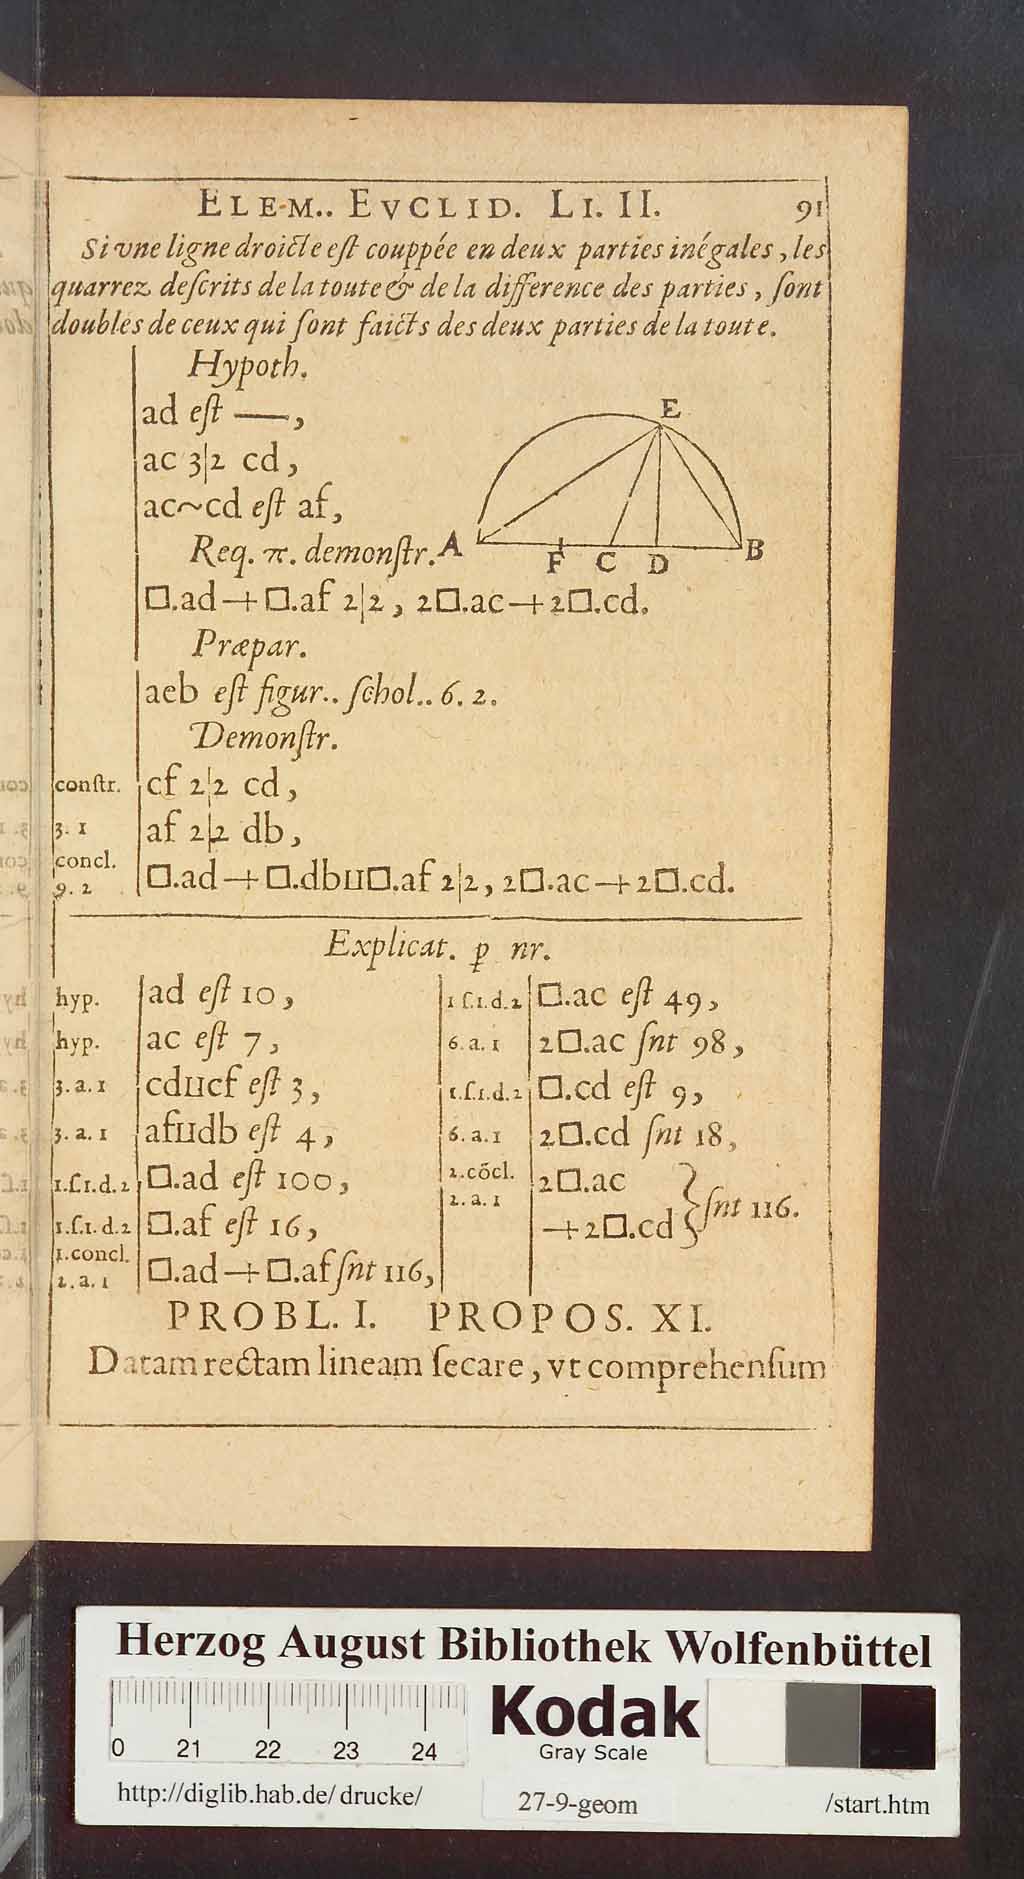 ELEM.. EVCLID. LI. II. 91
Si vne ligne droicte est couppée en deux parties inégales, les
quarrez descrits de la toute & de la difference des parties, sont
doubles de ceux qui sont faicts des deux parties de la toute.
Hypoth.
ad est —,
ac 3|2 cd,
ac~cd est af,
Req. π. demonstr.
□.ad+□.af 2|2, 2□.ac+2□.cd.
E
A F C D B
Præpar.
aeb est figur.. schol.. 6. 2.
Demonstr.
constr. cf 2|2 cd,
3. 1 af 2|2 db,
concl.
9. 2 □.ad+□.db⊔□.af 2|2, 2□.ac+2□.cd.
Explicat. p nr.
hyp. ad est 10,
hyp. ac est 7,
3. a. 1 cd⊔cf est 3,
3. a. 1 af⊔db est 4,
1.ſ.1.d.2 □.ad est 100,
1.ſ.1.d.2 □.af est 16,
1.concl.
2. a. 1 □.ad+□.af snt 116,
1.ſ.1.d.2 □.ac est 49,
6. a. 1 2□.ac snt 98,
1.ſ.1.d.2 □.cd est 9,
6. a. 1 2□.cd snt 18,
2.cōcl. 2□.ac
2. a. 1 +2□.cd } snt 116.
PROBL. I. PROPOS. XI.
Datam rectam lineam secare, vt comprehensum
Herzog August Bibliothek Wolfenbüttel
0 21 22 23 24
Kodak
Gray Scale
http://diglib.hab.de/drucke/ 27-9-geom /start.htm